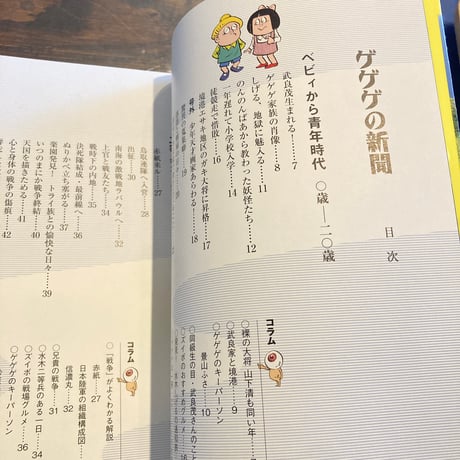 ゲゲゲの新聞
目次
ベビィから青年時代 〇歳―二〇歳
武良茂生まれる……7
ゲゲゲ家族の肖像……8
しげる、地獄に魅入る……11
のんのんばあから教わった妖怪たち……12
一年遅れて小学校入学……14
徒競走で惜敗……16
境港エサキ地区のガキ大将に昇格……17
号外 少年天才画家あらわる……18
コラム
〇裸の大将 山下清も同い年……7
〇武良家と境港……9
〇ゲゲゲのキーパーソン
景山ふさ……10
〇同級生の目・武良茂さんのこと
〇ズイボのおすすめグルメ
赤紙来ル……27
鳥取連隊へ入営……28
出征……30
南海の激戦地ラバウルへ……32
上官と戦友たち……34
戦時下の内地……35
決死隊結成・最前線へ……36
ぬりかべ立ち塞がる……37
楽園発見! トライ族との愉快な日々……39
いつのまにか戦争終結……40
天国を描きためる……41
心と身体の戦争の傷痕……42
コラム
〇「戦争」がよくわかる解説
赤紙……27
日本陸軍の組織構成図
信濃丸……32
兄貴の戦争……31
〇水木二等兵のある一日……34
〇ズイボの戦場グルメ……36
〇ゲゲゲのキーパーソン